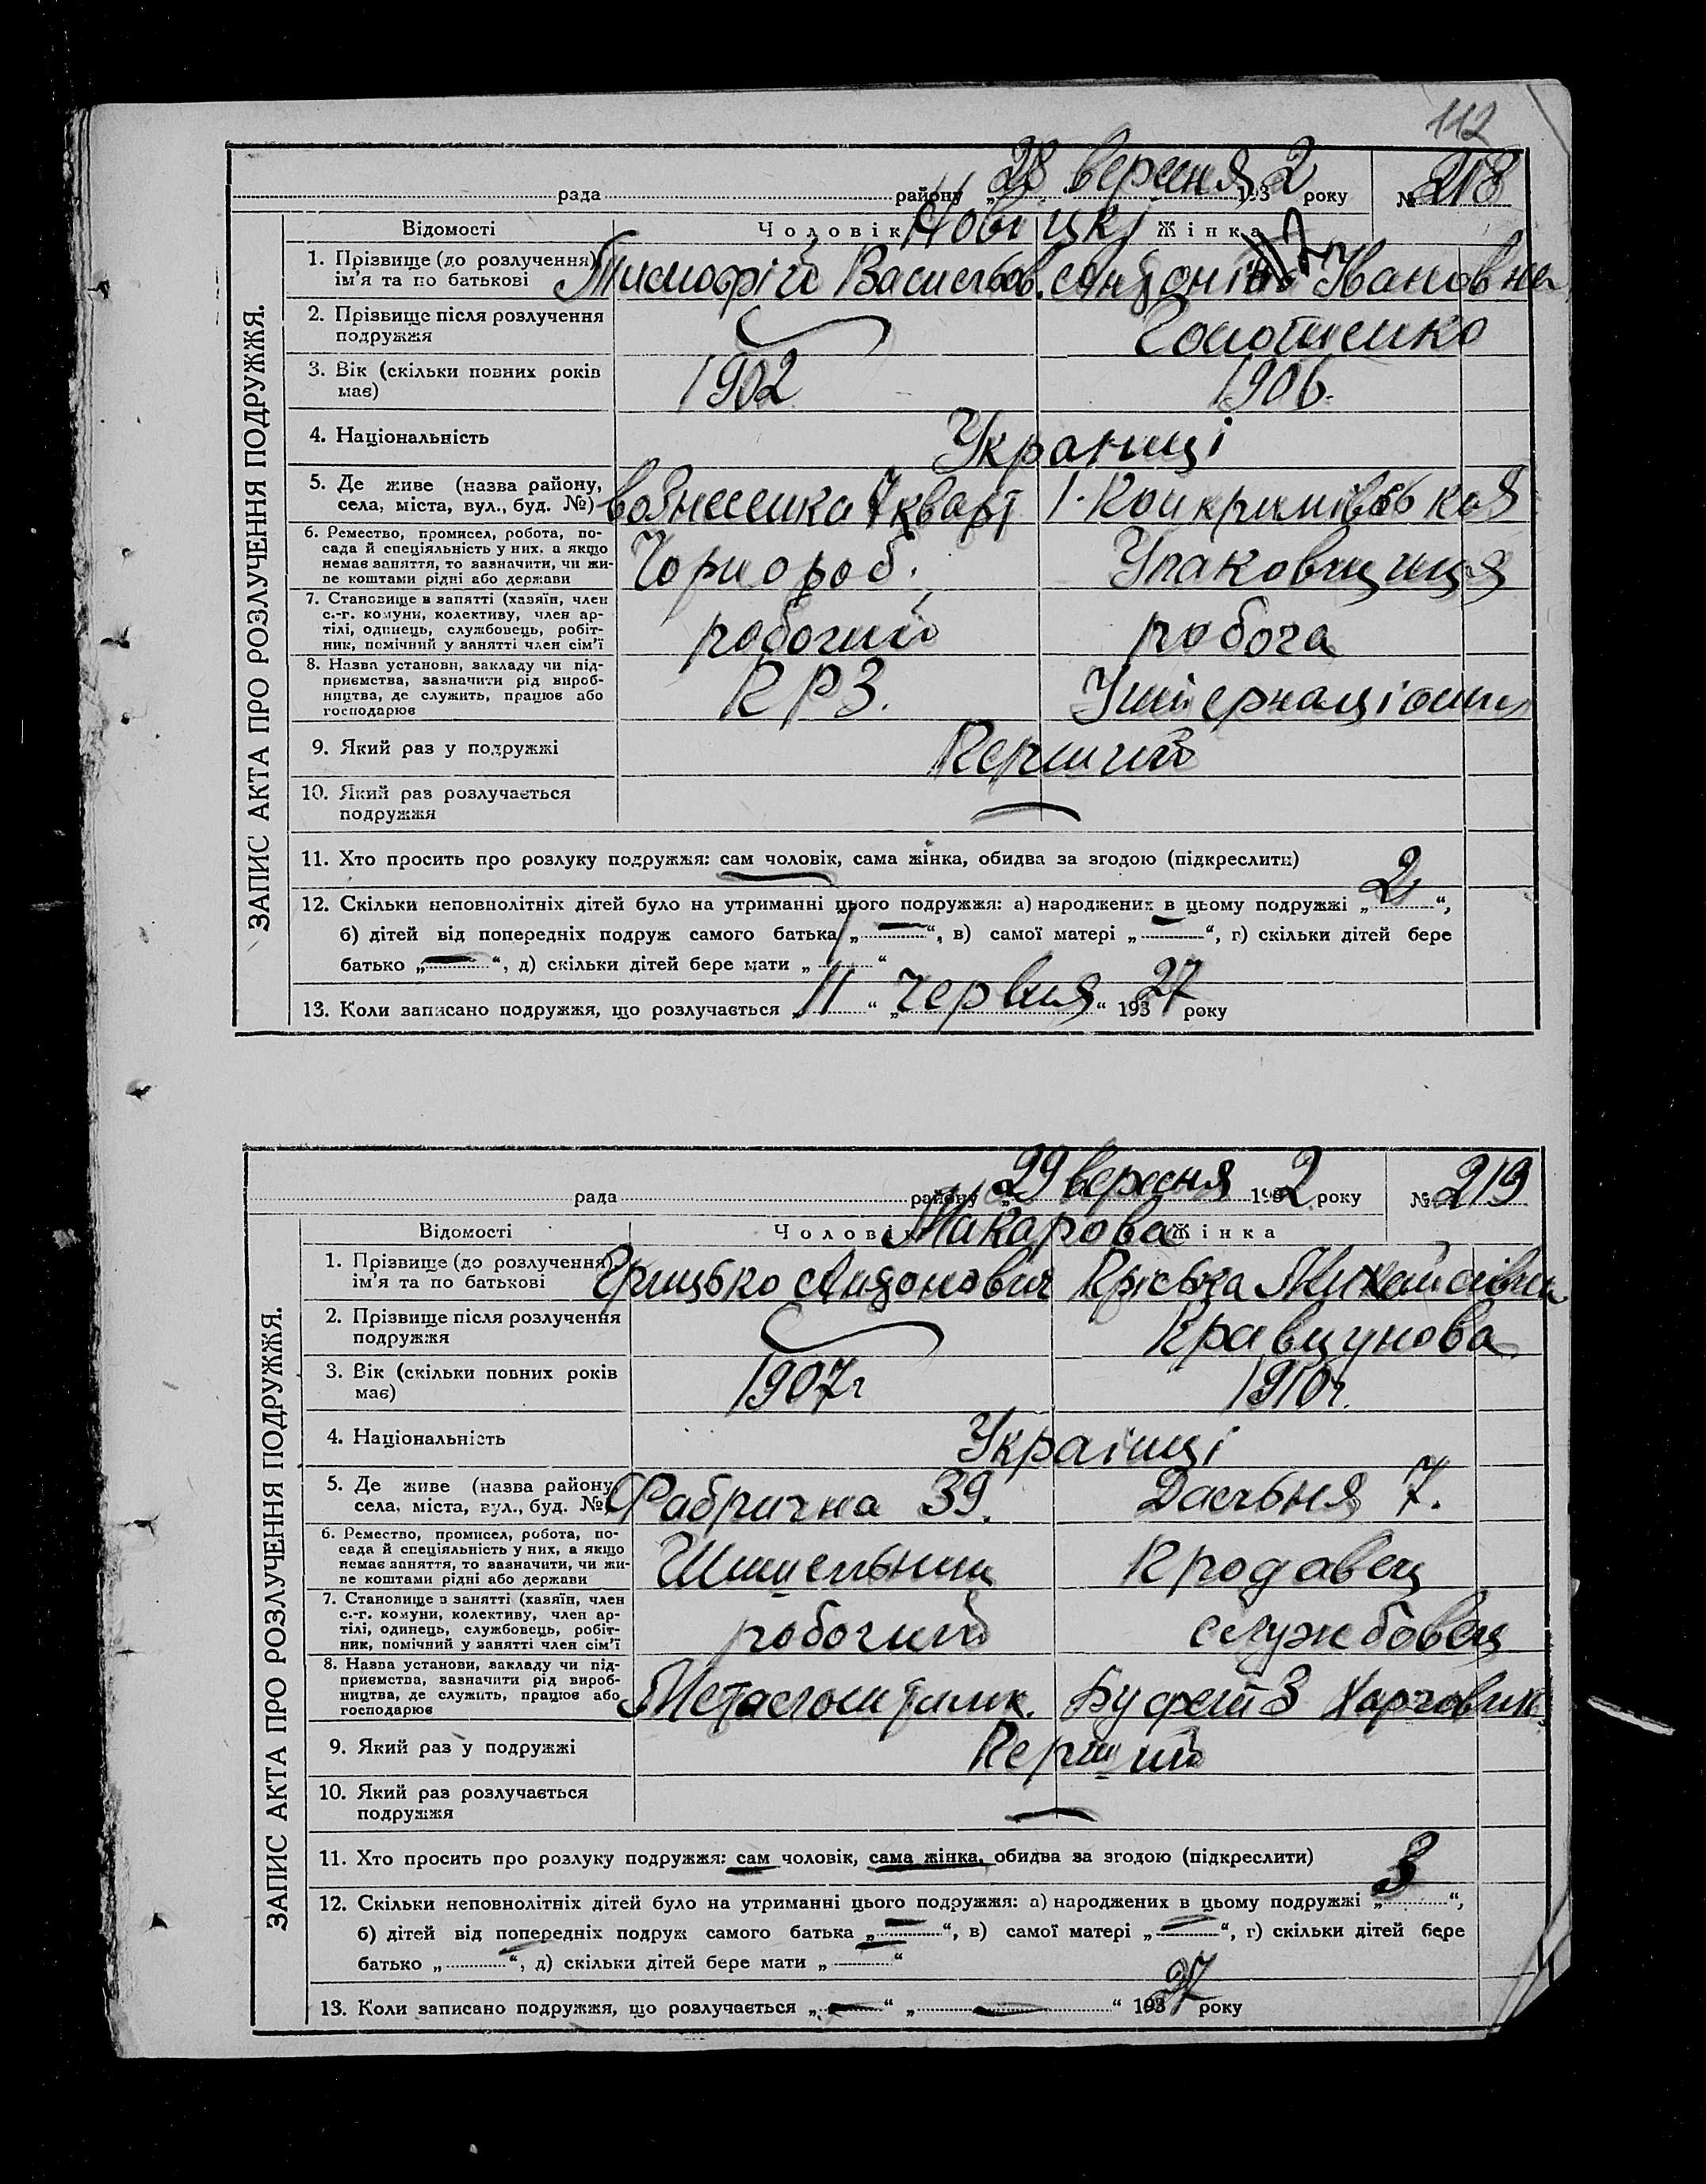 112
ЗАПИС АКТА ПРО РОЗЛУЧЕННЯ ПОДРУЖЖЯ.
рада району „28 вересня 1932 року № 218
Відомості Чоловік Жінка
Новіцкі
1. Прізвище (до розлучення) ім'я та по батькові Тимофій Васильов. Антоніна Івановна
2. Прізвище після розлучення подружжя
3. Вік (скільки повних років має) 1902 1906.
4. Національність Українці
5. Де живе (назва району, села, міста, вул., буд. №) Вознесенка 7 кварт 8
6. Ремество, промисел, робота, по-
сада й спеціяльність у них, а якщо
немає заняття, то зазначити, чи жи-
ве коштами рідні або держави
Чорнороб. Упаковщиця
7. Становище в занятті (хазяїн, член
с.-г. комуни, колективу, член ар-
тілі, одинець, службовець, робіт-
ник, помічний у занятті член сім'ї
робочий робоча
8. Назва установи, закладу чи під-
приємства, зазначити рід вироб-
ництва, де служить, працює або
господарює
9. Який раз у подружжі Перший
10. Який раз розлучається подружжя —
11. Хто просить про розлуку подружжя: сам чоловік, сама жінка, обидва за згодою (підкреслити)
12. Скільки неповнолітніх дітей було на утриманні цього подружжя: а) народжених в цьому подружжі „2“,
б) дітей від попередніх подруж самого батька „—“, в) самої матері „—“, г) скільки дітей бере
батько „—“, д) скільки дітей бере мати „ “
13. Коли записано подружжя, що розлучається „11“ „Червня“ 193 27 року
ЗАПИС АКТА ПРО РОЗЛУЧЕННЯ ПОДРУЖЖЯ.
рада району „29 вересня 1932 року № 219
Відомості Чоловік Жінка
Макарова
1. Прізвище (до розлучення) ім'я та по батькові Грицько Антонович Михайлівна
2. Прізвище після розлучення подружжя Кравцунова
3. Вік (скільки повних років має) 1907 г 1910 г.
4. Національність Українці
5. Де живе (назва району, села, міста, вул., буд. №) Фабрична 39. Дальня 7.
6. Ремество, промисел, робота, по-
сада й спеціяльність у них, а якщо
немає заняття, то зазначити, чи жи-
ве коштами рідні або держави
Продавец
7. Становище в занятті (хазяїн, член
с.-г. комуни, колективу, член ар-
тілі, одинець, службовець, робіт-
ник, помічний у занятті член сім'ї
робочий службовец
8. Назва установи, закладу чи під-
приємства, зазначити рід вироб-
ництва, де служить, працює або
господарює
Буфет 3
9. Який раз у подружжі Перший
10. Який раз розлучається подружжя —
11. Хто просить про розлуку подружжя: сам чоловік, сама жінка, обидва за згодою (підкреслити)
12. Скільки неповнолітніх дітей було на утриманні цього подружжя: а) народжених в цьому подружжі „3“,
б) дітей від попередніх подруж самого батька „—“, в) самої матері „—“, г) скільки дітей бере
батько „ “, д) скільки дітей бере мати „ “
13. Коли записано подружжя, що розлучається „—“ „—“ 193 27 року